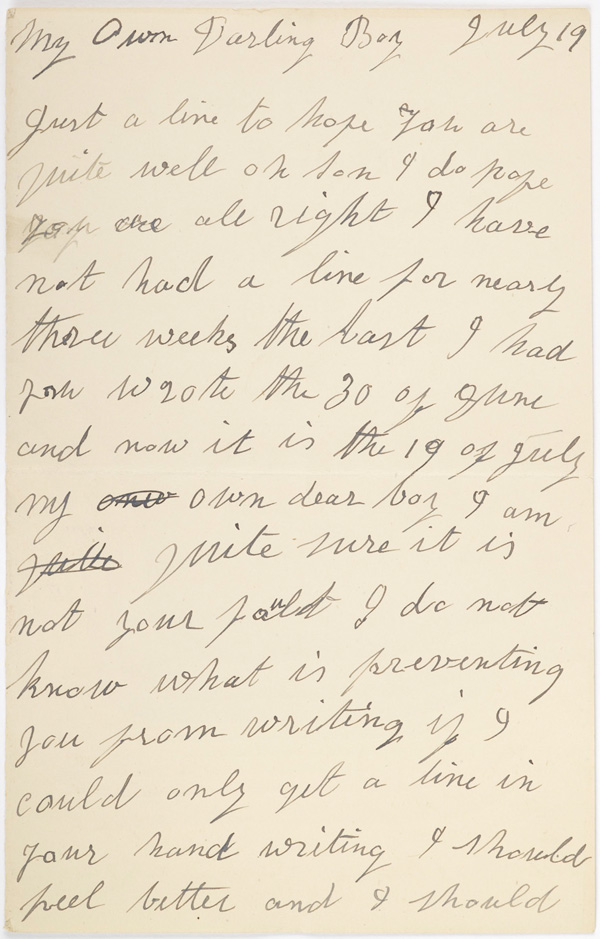 My Own Darling Boy July 19
Just a line to hope you are
quite well oh son I do hope
you are all right I have
not had a line for nearly
three weeks the last I had
you wrote the 30 of June
and now it is the 19 of July
my own own dear boy I am
quite quite sure it is
not your fault I do not
know what is preventing
you from writing if I
could only get a line in
your hand writing I should
feel better and I should